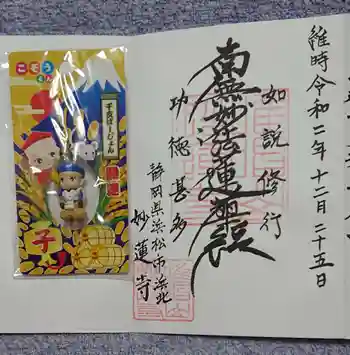 維時令和二年十二月二十五日
如説修行
南無妙法蓮華経
功徳甚多
静岡県浜松市浜北
妙蓮寺
こぞう
干支ばーじょん
開運
子